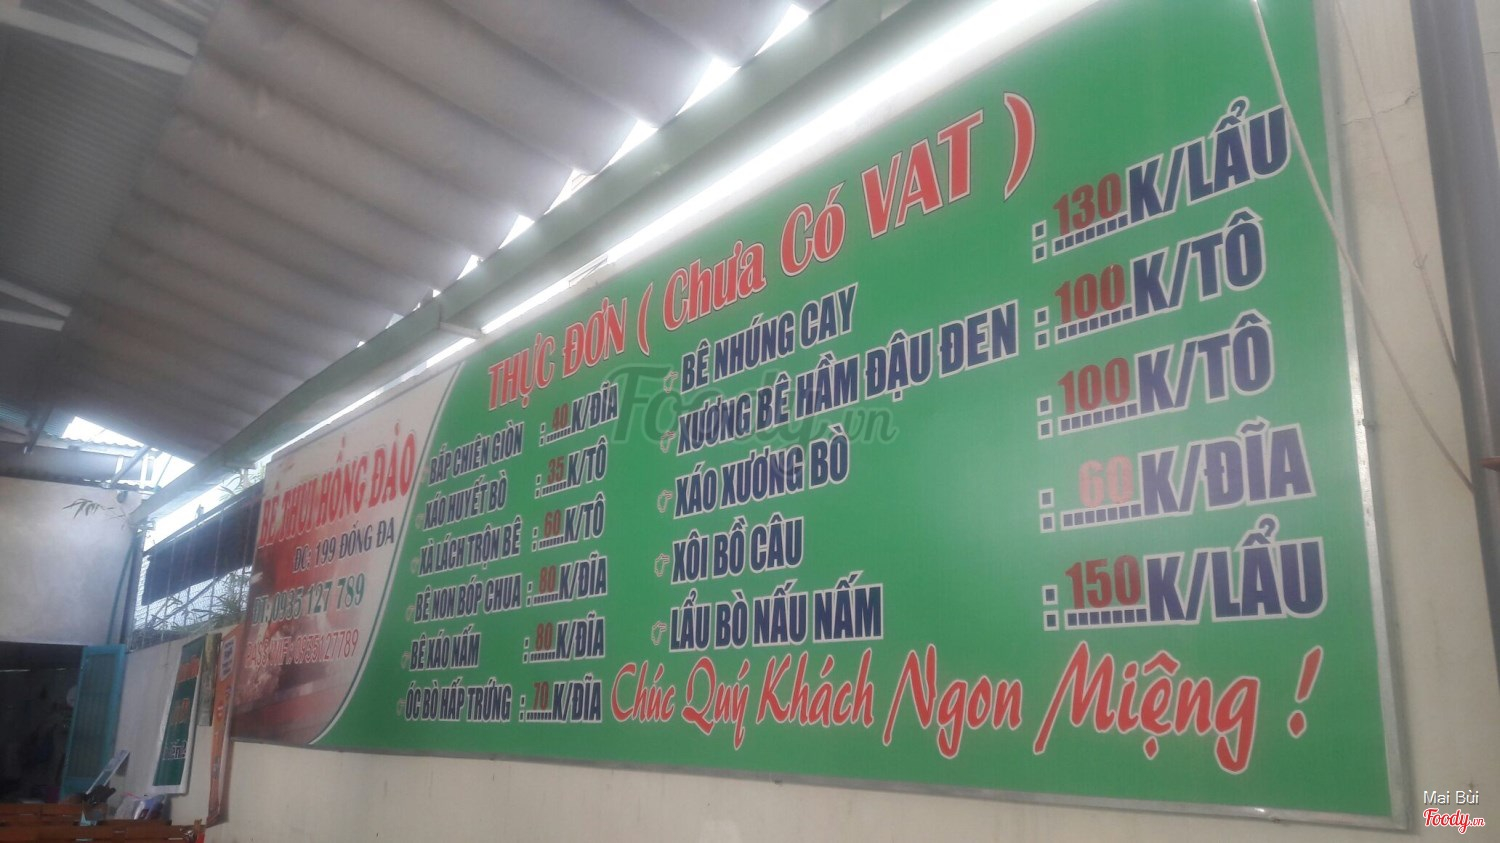 BÊ THUI HỒNG ĐÀO
ĐC: 199 ĐỐNG ĐA
ĐT: 0935 127 789
0935127789
THỰC ĐƠN ( Chưa Có VAT )
BẮP CHIÊN GIÒN :......40K/ĐĨA
XÁO HUYẾT BÒ :......35K/TÔ
XÀ LÁCH TRỘN BÊ :......60K/TÔ
BÊ NON BÓP CHUA :......80K/ĐĨA
BÊ XÁO NẤM :......80K/ĐĨA
ÓC BÒ HẤP TRỨNG :......70K/ĐĨA
BÊ NHÚNG CAY :......130K/LẨU
XƯƠNG BÊ HẦM ĐẬU ĐEN :......100K/TÔ
XÁO XƯƠNG BÒ :......100K/TÔ
XÔI BỒ CÂU :......60K/ĐĨA
LẨU BÒ NẤU NẤM :......150K/LẨU
Chúc Quý Khách Ngon Miệng !
Foody.vn
Mai Bùi
Foody.vn